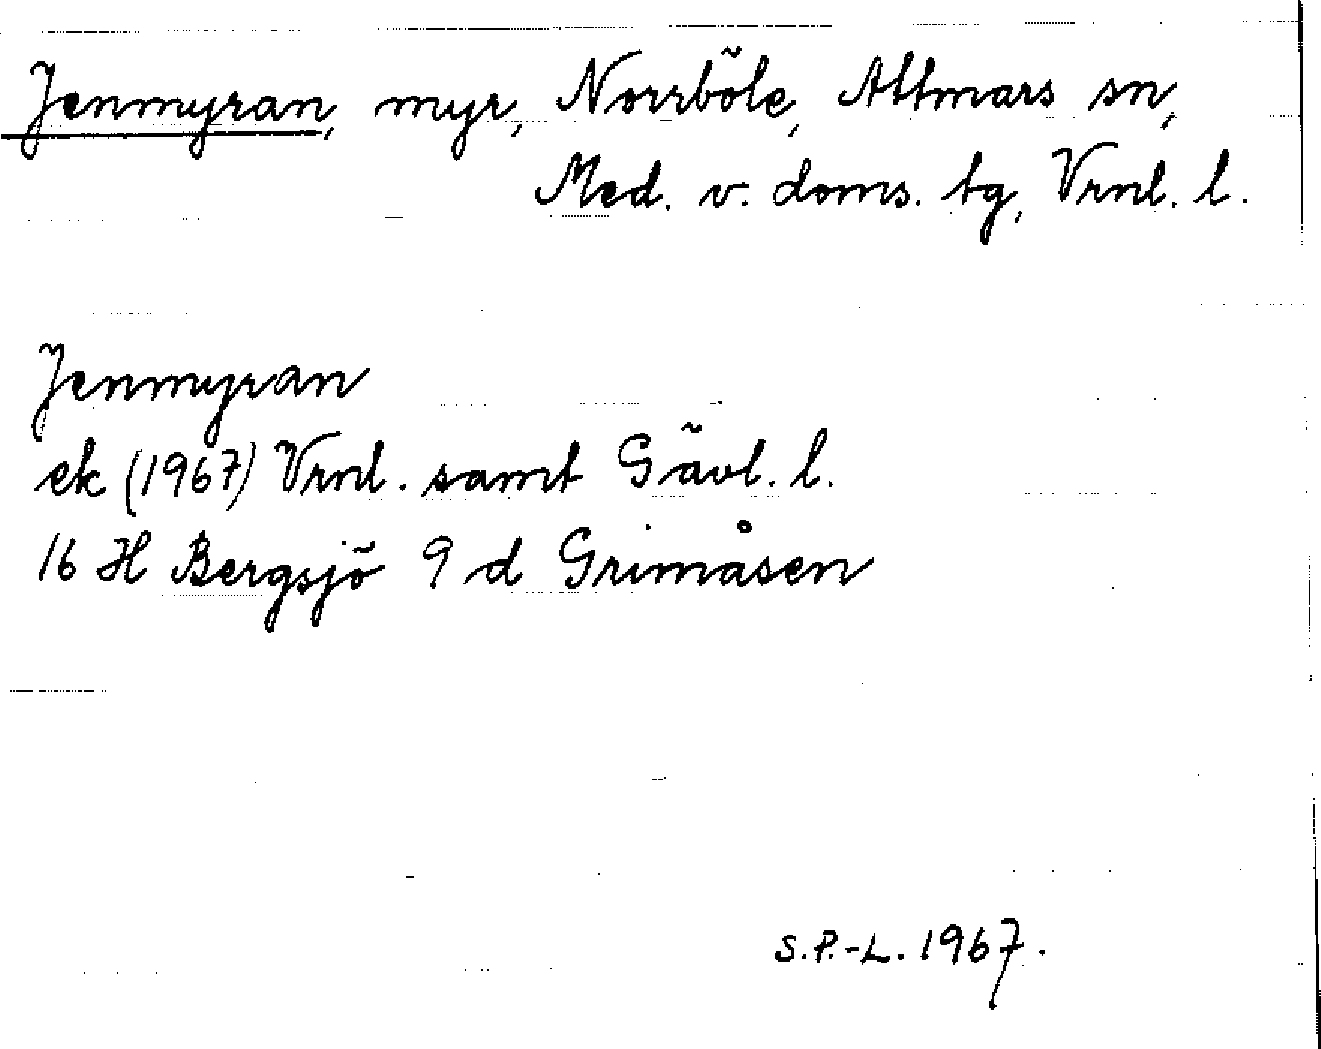 Jenmyran, myr, Norrböle, Attmars sn,
Med. v. doms. tg, Vrnl. l.
Jenmyran
ek (1967) Vrnl. samt Gävl. l.
16 H Bergsjö 9 d Grimåsen
S.P.-L. 1967.